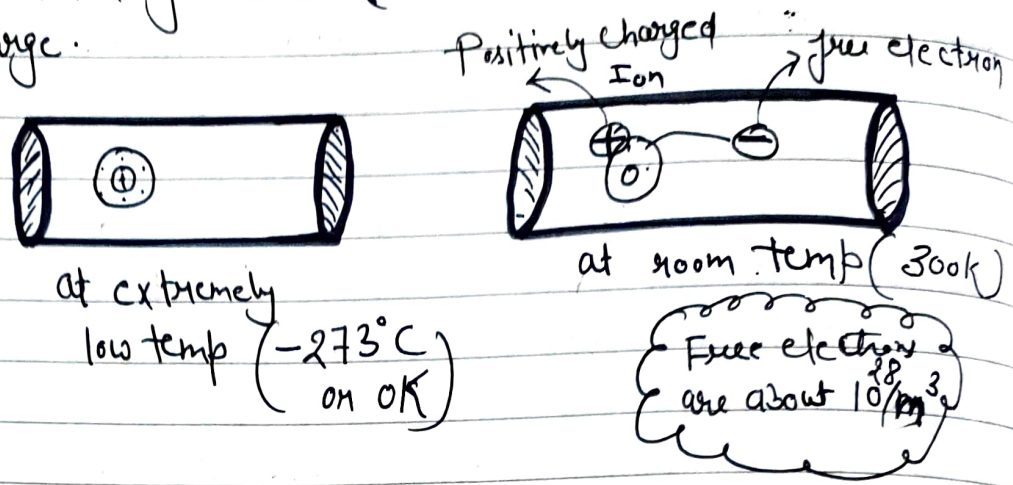 rge.
Positively charged
Ion
free electron
+
−
at extremely
low temp (-273°C
or 0K)
at room temp (300K)
Free electrons
are about 10²⁸/m³